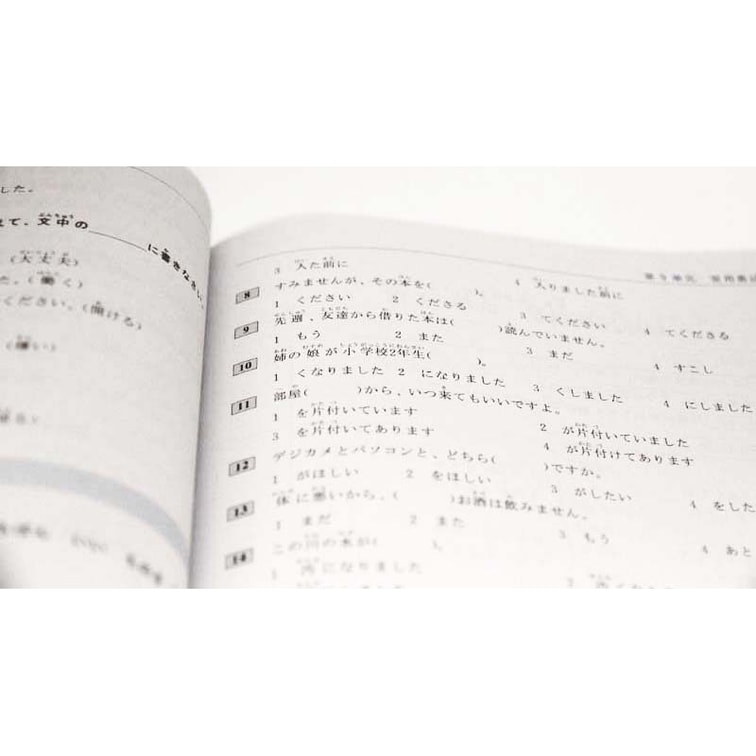 した。
えて、文中の＿＿＿に書きなさい。
(大丈夫)
た。(働く)
ください。(開ける)
(嫌い)
第9単元
3 入た前に
4 入りました前に
8 すみませんが、その本を( )。
1 ください 2 くださる 3 てください 4 てくださる
9 先週、友達から借りた本は( )読んでいません。
1 もう 2 また 3 まだ 4 すこし
10 姉の娘が小学校2年生( )。
1 くなりました 2 になりました 3 くしました 4 にしました
11 部屋( )から、いつ来てもいいですよ。
1 を片付いています 2 が片付いていました
3 を片付いてあります 4 が片付けてあります
12 デジカメとパソコンと、どちら( )ですか。
1 がほしい 2 をほしい 3 がしたい 4 をした
13 体に悪いから、( )お酒は飲みません。
1 まだ 2 また 3 もう 4 あと
14 この川の水が( )。
1 になりました